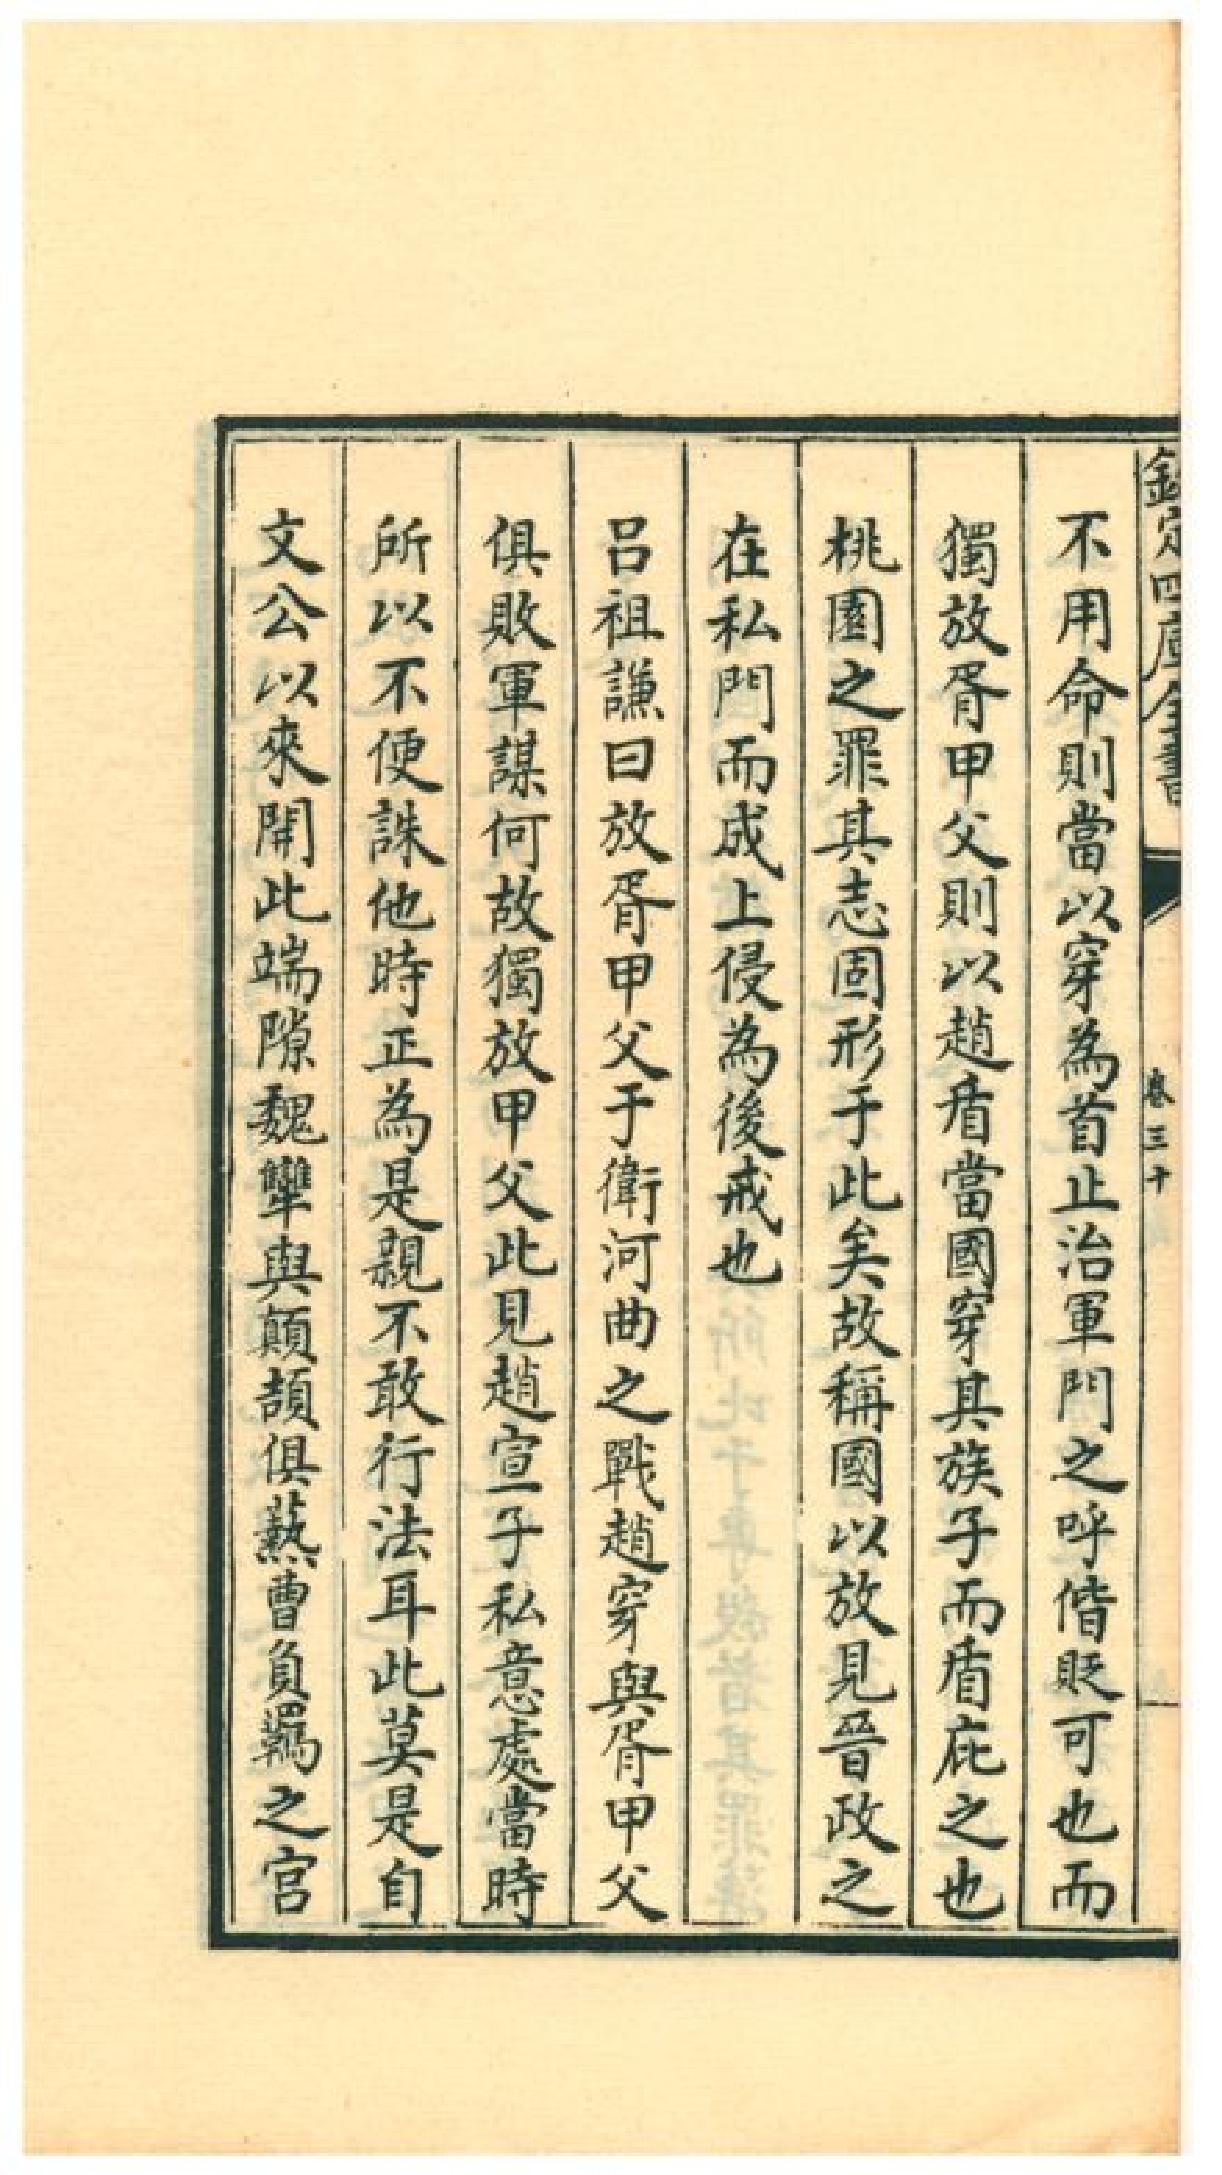 欽定四庫全書
卷三十
不用命則當以穿為首止治軍門之呼偕貶可也而
獨放胥甲父則以趙盾當國穿其族子而盾庇之也
桃園之罪其志固形于此矣故稱國以放見晉政之
在私門而成上侵為後戒也
吕祖謙曰放胥甲父于衛河曲之戰趙穿與胥甲父
俱敗軍謀何故獨放甲父此見趙宣子私意處當時
所以不便誅他時正為是親不敢行法耳此莫是自
文公以來開此端隙魏犨與顛頡俱爇曹負羈之宫